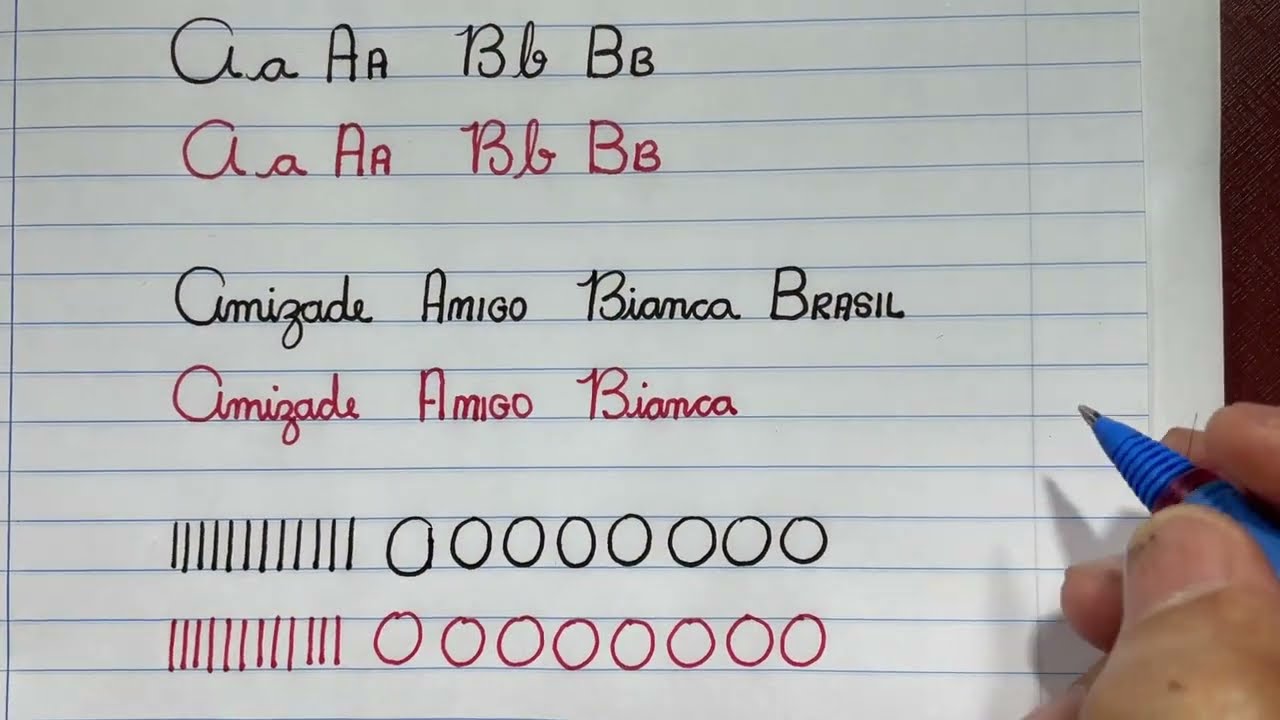 Aa AA Bb BB
Aa AA Bb BB
Amizade AMIGO Bianca BRASIL
Amizade AMIGO Bianca